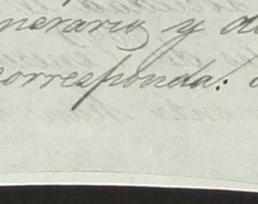 nerario y d
corresponda: